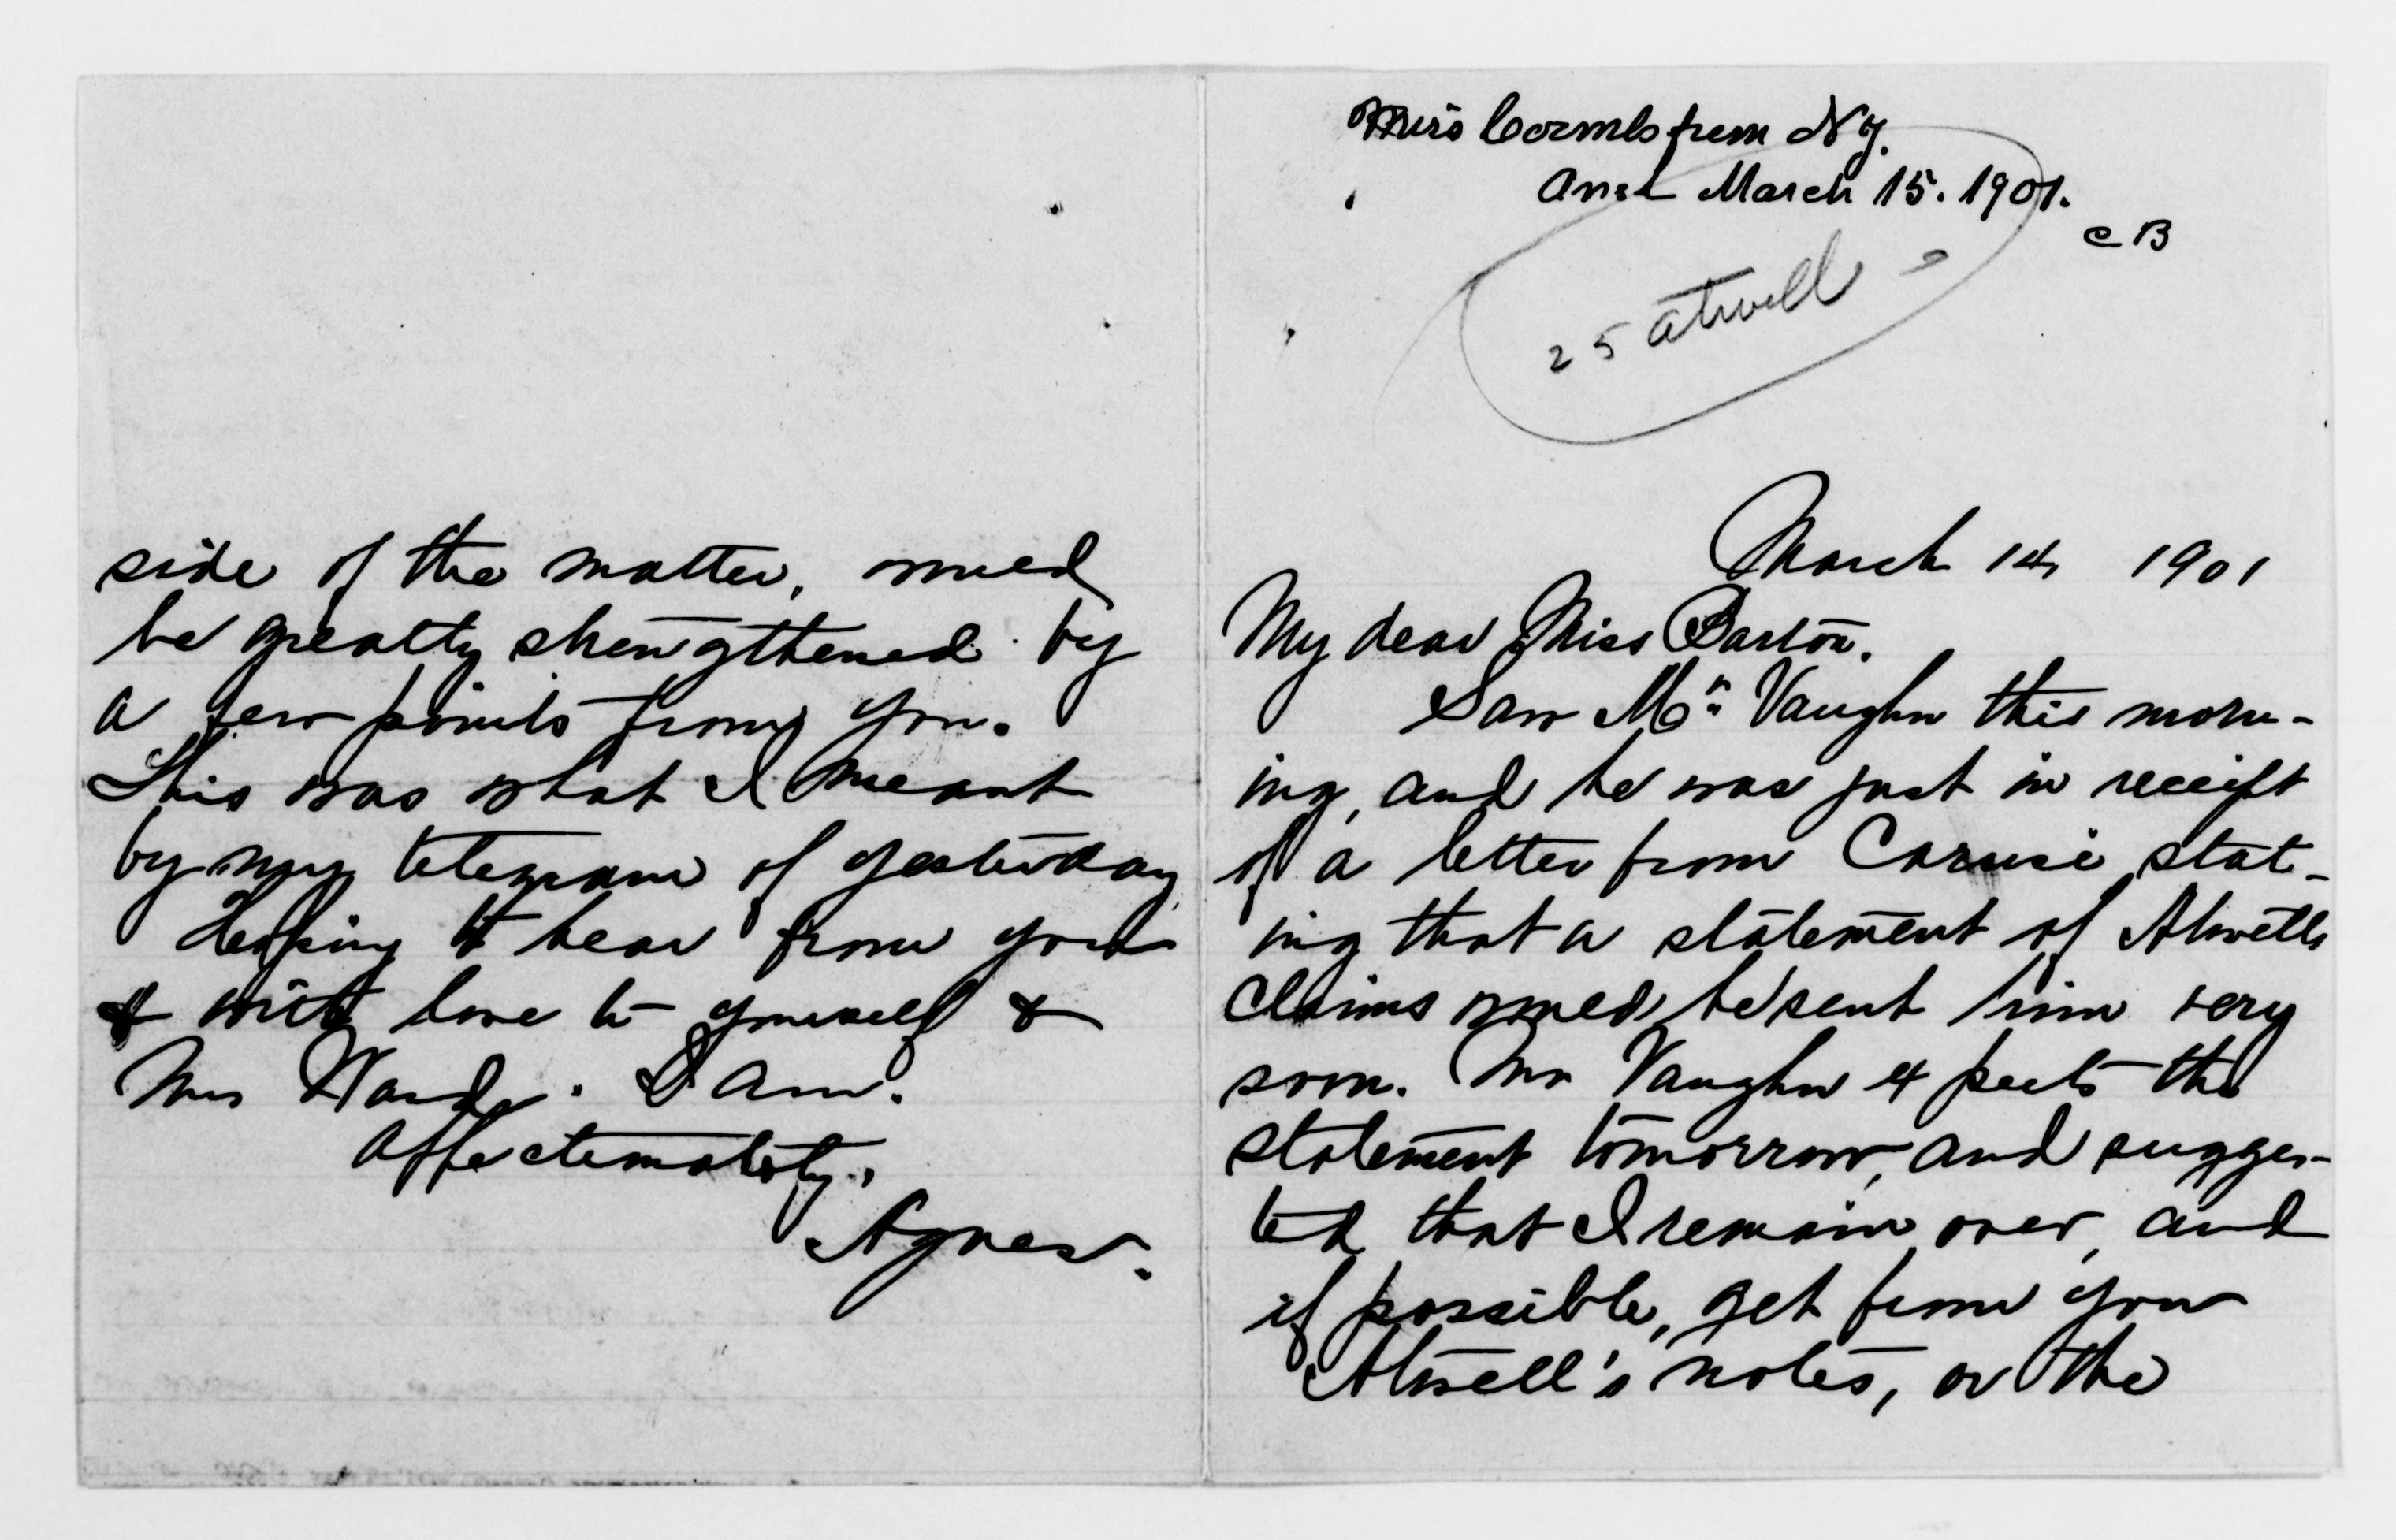 Miss Coombs from N Y.
Ansd March 15. 1901.
C B
25 Atwell
March 14 1901
My dear Miss Barton.
Saw Mr Vaughn this morn-
ing, and he was just in receipt
of a letter from Carusi stat-
ing that a statement of Atwells
claims would be sent him very
soon. Mr Vaughn expects the
statement tomorrow, and sugges-
ted that I remain over, and
if possible, get from you
Atwell's notes, or the
side of the matter, would
be greatly strengthened by
a few points from you.
This was what I meant
by my telegram of yesterday
Hoping to hear from you
& with love to yourself &
Mrs Ward. I am.
Affectionately,
Agnes.